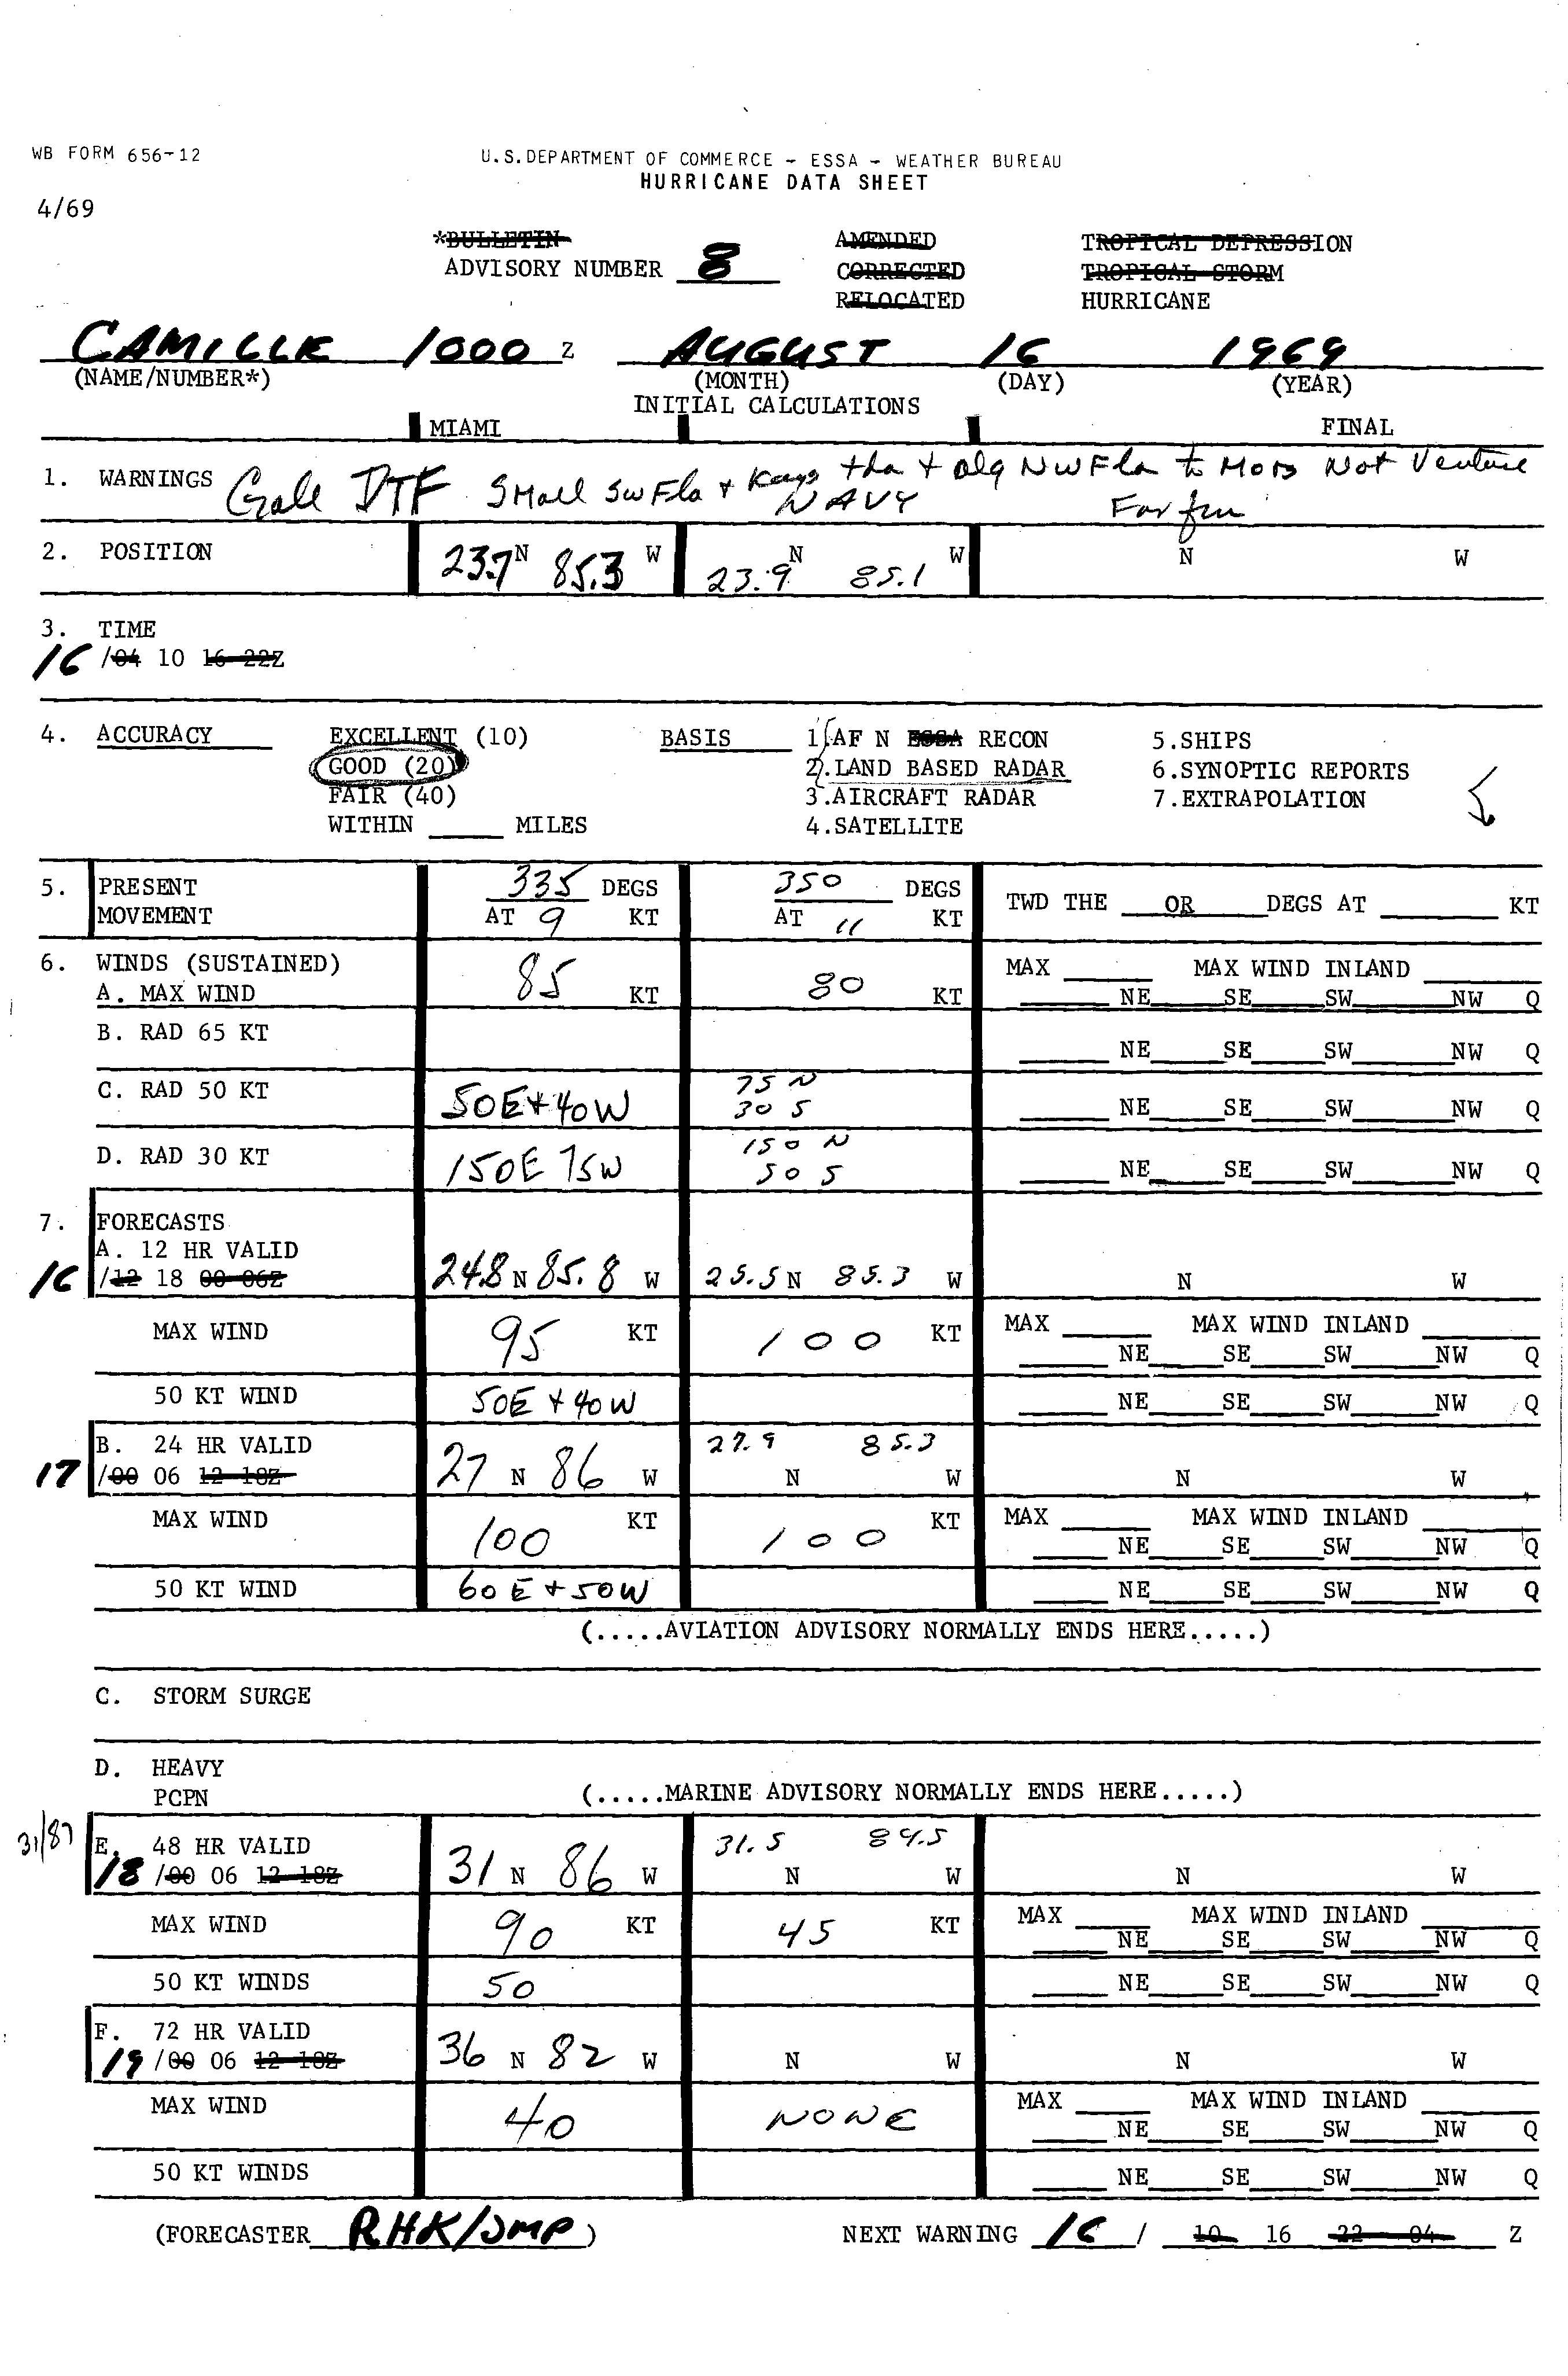 WB FORM 656-12
U.S. DEPARTMENT OF COMMERCE - ESSA - WEATHER BUREAU
HURRICANE DATA SHEET
4/69
*BULLETIN AMENDED TROPICAL DEPRESSION
ADVISORY NUMBER 8 CORRECTED TROPICAL STORM
RELOCATED HURRICANE
CAMILLE 1000 Z AUGUST 16 1969
(NAME/NUMBER*) (MONTH) (DAY) (YEAR)
INITIAL CALCULATIONS
MIAMI FINAL
1. WARNINGS Gale DTF Small SW Fla + Keys + alg NW Fla to Not Venture
NAVY Far
2. POSITION 23.7 N 85.3 W 23.9 N 85.1 W N W
3. TIME
16 /04 10 16 22Z
4. ACCURACY EXCELLENT (10) BASIS 1.AF N ESSA RECON 5.SHIPS
GOOD (20) 2.LAND BASED RADAR 6.SYNOPTIC REPORTS
FAIR (40) 3.AIRCRAFT RADAR 7.EXTRAPOLATION
WITHIN ____ MILES 4.SATELLITE
5. PRESENT 335 DEGS 350 DEGS TWD THE ____ OR ____ DEGS AT ____ KT
MOVEMENT AT 9 KT AT 11 KT
6. WINDS (SUSTAINED) MAX ____ MAX WIND INLAND ____
A. MAX WIND 85 KT 80 KT NE SE SW NW Q
B. RAD 65 KT NE SE SW NW Q
C. RAD 50 KT 50E+40W 75 N
30 S NE SE SW NW Q
D. RAD 30 KT 150E 75W 150 N
50 S NE SE SW NW Q
7. FORECASTS
A. 12 HR VALID
16 /12 18 00 06Z 24.8 N 85.8 W 25.5 N 85.3 W N W
MAX WIND 95 KT 100 KT MAX ____ MAX WIND INLAND ____
NE SE SW NW Q
50 KT WIND 50E + 40W NE SE SW NW Q
B. 24 HR VALID 27.9 85.3
17 /00 06 12 18Z 27 N 86 W N W N W
MAX WIND 100 KT 100 KT MAX ____ MAX WIND INLAND ____
NE SE SW NW Q
50 KT WIND 60E + 50W NE SE SW NW Q
(.....AVIATION ADVISORY NORMALLY ENDS HERE.....)
C. STORM SURGE
D. HEAVY
PCPN (.....MARINE ADVISORY NORMALLY ENDS HERE.....)
31/87 E. 48 HR VALID 31.5 84.5
18 /00 06 12 18Z 31 N 86 W N W N W
MAX WIND 90 KT 45 KT MAX ____ MAX WIND INLAND ____
NE SE SW NW Q
50 KT WINDS 50 NE SE SW NW Q
F. 72 HR VALID
19 /00 06 12 18Z 36 N 82 W N W N W
MAX WIND 40 NONE MAX ____ MAX WIND INLAND ____
NE SE SW NW Q
50 KT WINDS NE SE SW NW Q
(FORECASTER RHK/JMP) NEXT WARNING 16 / 10 16 22 04 Z